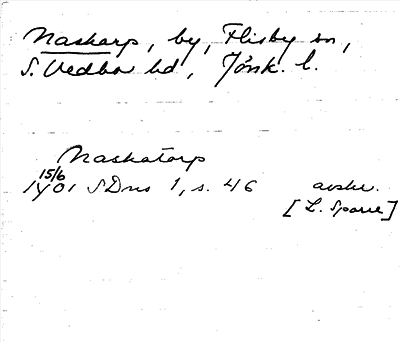 Naskarp, by, Flisby sn,
S. Vedbo hd, Jönk. l.
Naskatorp
15/6 1401 SDns 1, s. 46 avskr.
[L. Sparre]